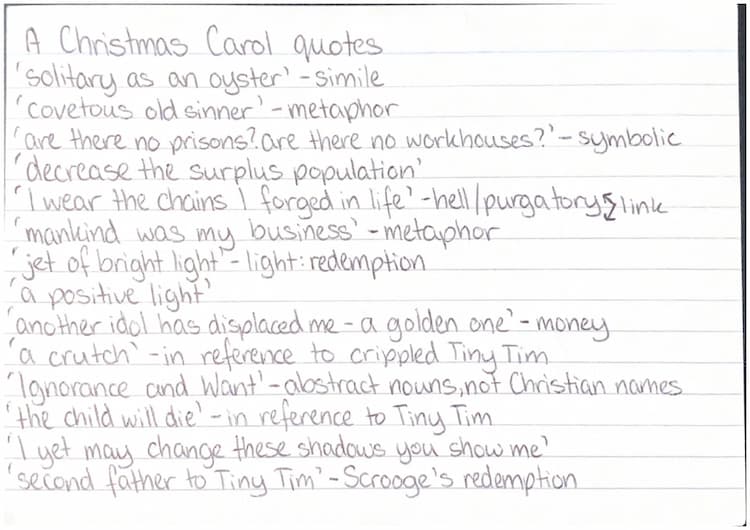 A Christmas Carol quotes
'solitary as an oyster' - simile
'covetous old sinner' - metaphor
'are there no prisons? are there no workhouses?' - symbolic
'decrease the surplus population'
'I wear the chains I forged in life' - hell/purgatory link
'mankind was my business' - metaphor
'jet of bright light' - light: redemption
'a positive light'
'another idol has displaced me - a golden one' - money
'a crutch' - in reference to crippled Tiny Tim
'Ignorance and Want' - abstract nouns, not Christian names
'the child will die' - in reference to Tiny Tim
'I yet may change these shadows you show me'
'second father to Tiny Tim' - Scrooge's redemption